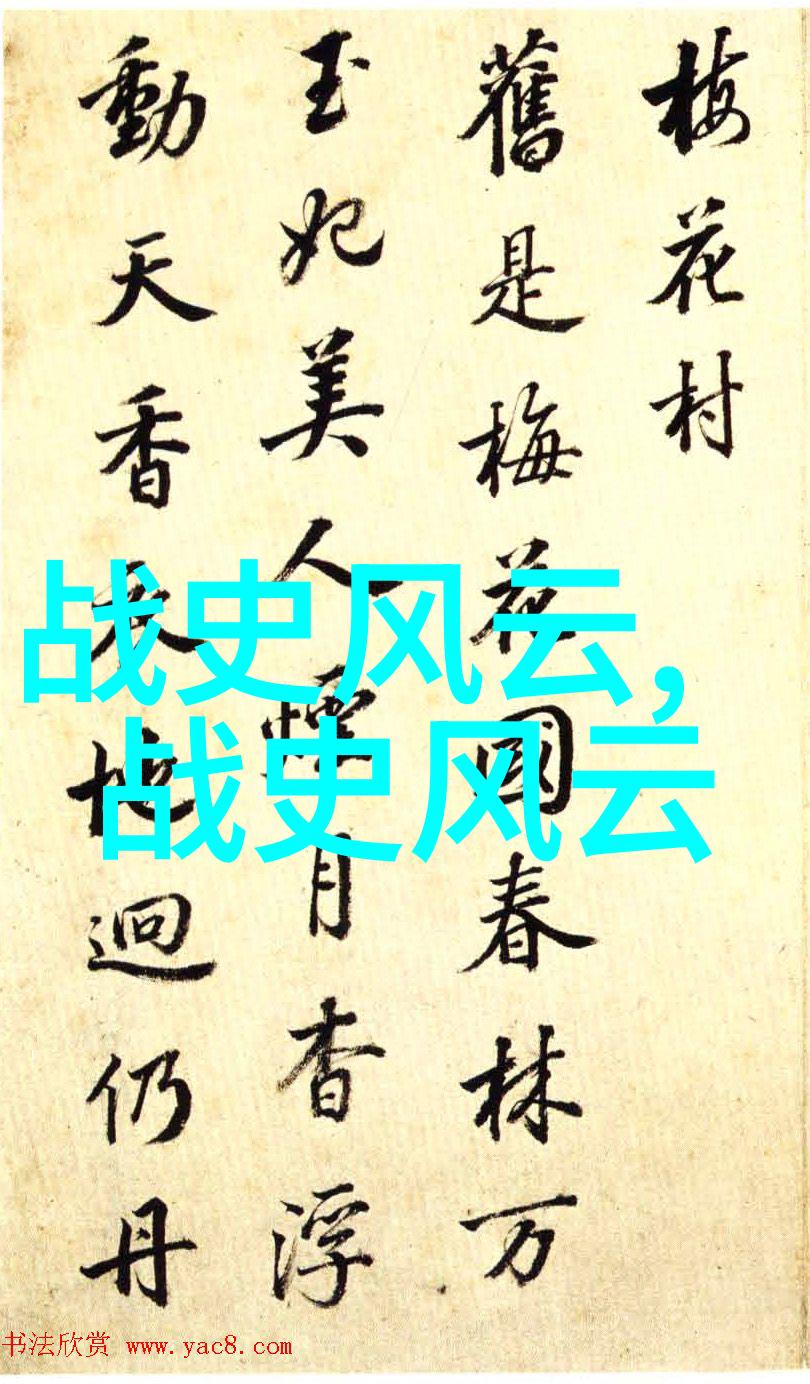 梅花村
舊是梅花國春林万
玉妃美人煙月杳浮
動天香地逈仍丹
战史风云,
战史风云
书法欣赏 www.yac8.com